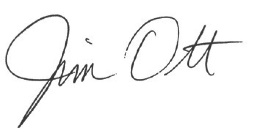 Jim Ott